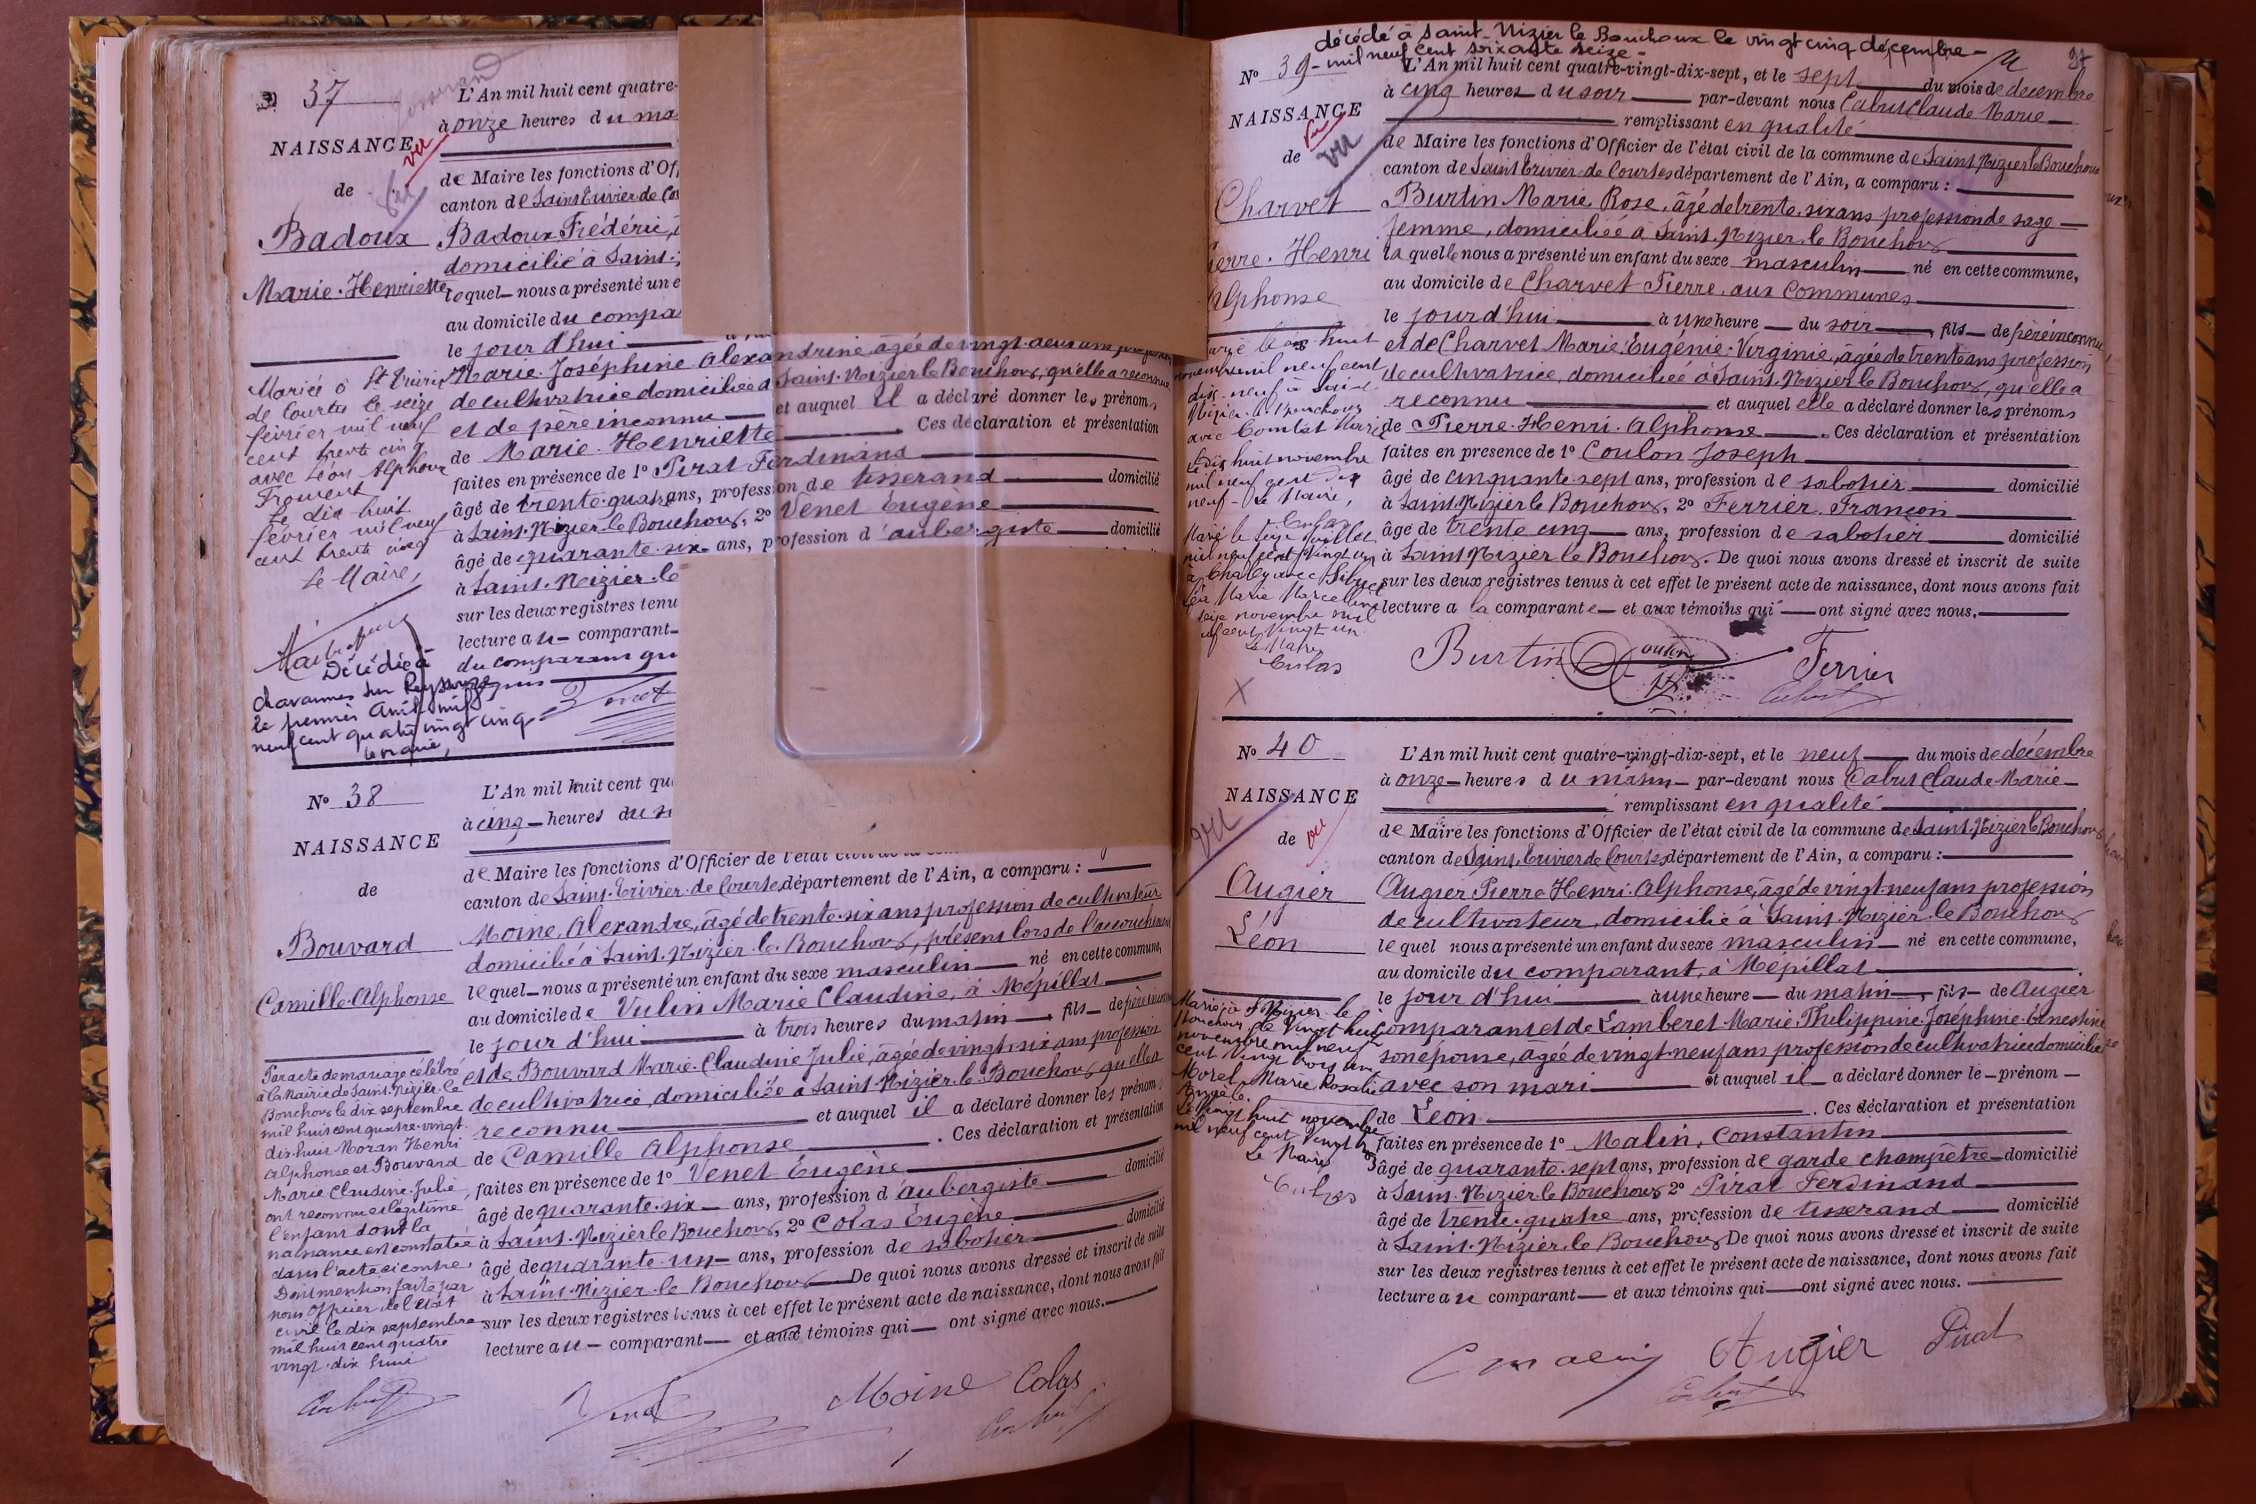 37
L'An mil huit cent quatre-
à onze heures du ma
NAISSANCE
vu
de Maire les fonctions d'Of
de
canton de Saint Trivier de Cou
Badoux
Badoux Frédéric,
domicilié à Saint-
Marie-Henriette
lequel nous a présenté un e
au domicile du compa
le jour d'hui
Marie Joséphine Alexandrine âgée de vingt-deux ans
de cultivatrice domiciliée à Saint-Nizier le Bouchoux, qu'elle a reconnue
et de père inconnu et auquel il a déclaré donner les prénoms
de Marie-Henriette Ces déclaration et présentation
faites en présence de 1° Pirat Ferdinand
âgé de trente-quatre ans, profession de tisserand domicilié
à Saint-Nizier le Bouchoux, 2° Venet Eugène
âgé de quarante-six ans, profession d'aubergiste domicilié
à Saint-Nizier-le
sur les deux registres tenu
lecture au comparant
du comparant qu
Mariée à St Trivier
de Courtes le seize
février mil neuf
cent trente cinq
avec Léon Alphonse
Froment
Le dix huit
février mil neuf
cent trente cinq
Le Maire,
Décédée à
Chavannes sur Reyssouze
le premier Avril mil
neuf cent quatre vingt cinq
le maire,
N° 38
L'An mil huit cent qu
à cinq heures du
NAISSANCE
de Maire les fonctions d'Officier de l'état civil de la com
de
canton de Saint-Trivier-de Courtes département de l'Ain, a comparu :
Bouvard
Moine, Alexandre, âgé de trente-six ans profession de cultivateur
domicilié à Saint-Nizier-le-Bouchoux, présent lors de l'accouchement
Camille Alphonse
lequel nous a présenté un enfant du sexe masculin né en cette commune,
au domicile de Vulin Marie Claudine, à Mépillat
le jour d'hui à trois heures du matin, fils de père inconnu
et de Bouvard Marie-Claudine Julie, âgée de vingt-six ans profession
de cultivatrice, domiciliée à Saint-Nizier-le-Bouchoux qu'elle a
reconnu et auquel il a déclaré donner les prénoms
de Camille Alphonse. Ces déclaration et présentation
faites en présence de 1° Venet Eugène
âgé de quarante-six ans, profession d'aubergiste domicilié
à Saint-Nizier le Bouchoux, 2° Colas Eugène
âgé de quarante-un ans, profession de sabotier domicilié
à Saint-Nizier-le Bouchoux De quoi nous avons dressé et inscrit de suite
sur les deux registres tenus à cet effet le présent acte de naissance, dont nous avons fait
lecture au comparant et aux témoins qui ont signé avec nous.
Par acte de mariage célébré
à la Mairie de Saint-Nizier-le
Bouchoux le dix septembre
mil huit cent quatre-vingt
dix-huit Moran Henri
Alphonse et Bouvard
Marie Claudine Julie
ont reconnu et légitimé
l'enfant dont la
naissance est constatée
dans l'acte ci contre
Dont mention faite par
nous Officier de l'état
civil le dix septembre
mil huit cent quatre
vingt-dix huit
Moine Colas
décédé à Saint-Nizier le Bouchoux le vingt cinq décembre
mil neuf cent soixante seize-
37
N° 39
L'An mil huit cent quatre-vingt-dix-sept, et le sept du mois de décembre
à cinq heures du soir par-devant nous Cabut Claude Marie
NAISSANCE
remplissant en qualité
vu
de
de Maire les fonctions d'Officier de l'état civil de la commune de Saint Nizier le Bouchoux
canton de Saint Trivier de Courtes département de l'Ain, a comparu :
Charvet
Burtin Marie Rose, âgé de trente-six ans profession de sage
femme, domiciliée à Saint-Nizier le Bouchoux
Pierre-Henri
laquelle nous a présenté un enfant du sexe masculin né en cette commune,
Alphonse
au domicile de Charvet Pierre, aux Communes
le jour d'hui à une heure du soir, fils de père inconnu
et de Charvet Marie Eugénie-Virginie, âgée de trente ans profession
de cultivatrice, domiciliée à Saint-Nizier le Bouchoux, qu'elle a
reconnu et auquel elle a déclaré donner les prénoms
de Pierre-Henri-Alphonse. Ces déclaration et présentation
faites en présence de 1° Coulon Joseph
âgé de cinquante sept ans, profession de sabotier domicilié
à Saint-Nizier le Bouchoux, 2° Ferrier François
âgé de trente cinq ans, profession de sabotier domicilié
à Saint Nizier le Bouchoux. De quoi nous avons dressé et inscrit de suite
sur les deux registres tenus à cet effet le présent acte de naissance, dont nous avons fait
lecture a la comparante et aux témoins qui ont signé avec nous.
huit
novembre mil neuf cent
dix-neuf à Saint
Nizier le Bouchoux
avec Comtet Marie
Le dix huit novembre
mil neuf cent dix
neuf - Le Maire,
Marié le seize juillet
mil neuf cent vingt un
seize novembre mil
neuf cent vingt un
Le Maire
Burtin Coulon Ferrier
N° 40
L'An mil huit cent quatre-vingt-dix-sept, et le neuf du mois de décembre
à onze heures du matin par-devant nous Cabut Claude-Marie
NAISSANCE
remplissant en qualité
vu
de
vu
de Maire les fonctions d'Officier de l'état civil de la commune de Saint-Nizier le Bouchoux
canton de Saint-Trivier de Courtes département de l'Ain, a comparu :
Augier
Augier Pierre Henri Alphonse, âgé de vingt-neuf ans profession
de cultivateur, domicilié à Saint-Nizier-le Bouchoux
Léon
lequel nous a présenté un enfant du sexe masculin né en cette commune,
au domicile du comparant, à Mépillat
le jour d'hui à une heure du matin, fils de Augier
comparant et de Lamberet Marie-Philippine-Joséphine-Ernestine
son épouse, âgée de vingt-neuf ans profession de cultivatrice domiciliée
avec son mari et auquel il a déclaré donner le prénom
de Léon. Ces déclaration et présentation
faites en présence de 1° Malin, Constantin
âgé de quarante-sept ans, profession de garde champêtre domicilié
à Saint-Nizier-le Bouchoux 2° Pirat Ferdinand
âgé de trente-quatre ans, profession de tisserand domicilié
à Saint-Nizier-le Bouchoux De quoi nous avons dressé et inscrit de suite
sur les deux registres tenus à cet effet le présent acte de naissance, dont nous avons fait
lecture au comparant et aux témoins qui ont signé avec nous.
Marié à St Nizier le
Bouchoux le vingt huit
novembre mil neuf
cent vingt trois avec
Morel Marie Rosalie
Angèle.
Le vingt huit novembre
mil neuf cent vingt trois
Le Maire
Augier Pirat